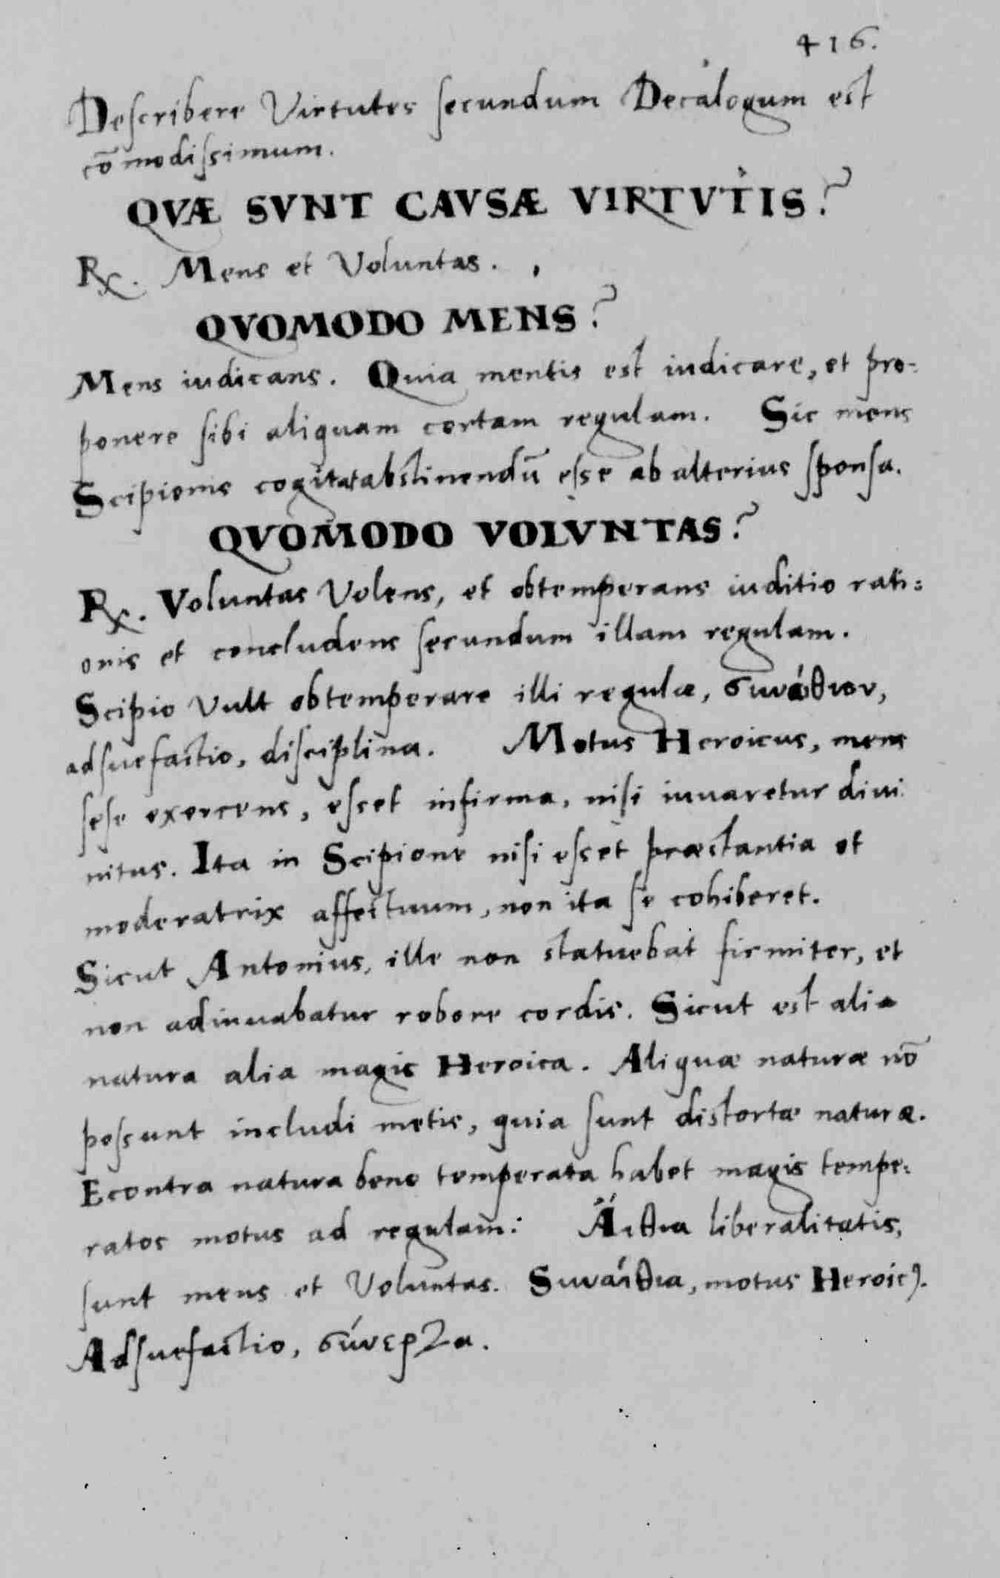 416.
Describere Virtutes secundum Decalogum est
cō modissimum.
QVÆ SVNT CAVSÆ VIRTVTIS?
R. Mens et Voluntas.
QVOMODO MENS?
Mens iudicans. Quia mentis est iudicare, et pro-
ponere sibi aliquam certam regulam. Sic mens
Scipionis cogitat abstinendū esse ab alterius sponsa.
QVOMODO VOLVNTAS?
R. Voluntas Volens, et obtemperans iuditio rati=
onis et concludens secundum illam regulam.
Scipio vult obtemperare illi regulæ, συναίθιον,
adsuefactio, disciplina. Motus Heroicus, mens
sese exercens, esset infirma, nisi iuvaretur divi
nitus. Ita in Scipione nisi esset præstantia et
moderatrix affectuum, non ita se cohiberet.
Sicut Antonius, ille non statuebat firmiter, et
non adiuvabatur robore cordis. Sicut est alia
natura alia magis Heroica. Aliquæ naturæ nō
possunt includi metis, quia sunt distortæ naturæ.
Econtra natura bene temperata habet magis tempe-
ratos motus ad regulam: Ἄιθια liberalitatis,
sunt mens et Voluntas. Συναίθια, motus Heroicꝰ.
Adsuefactio, σύνεργα.